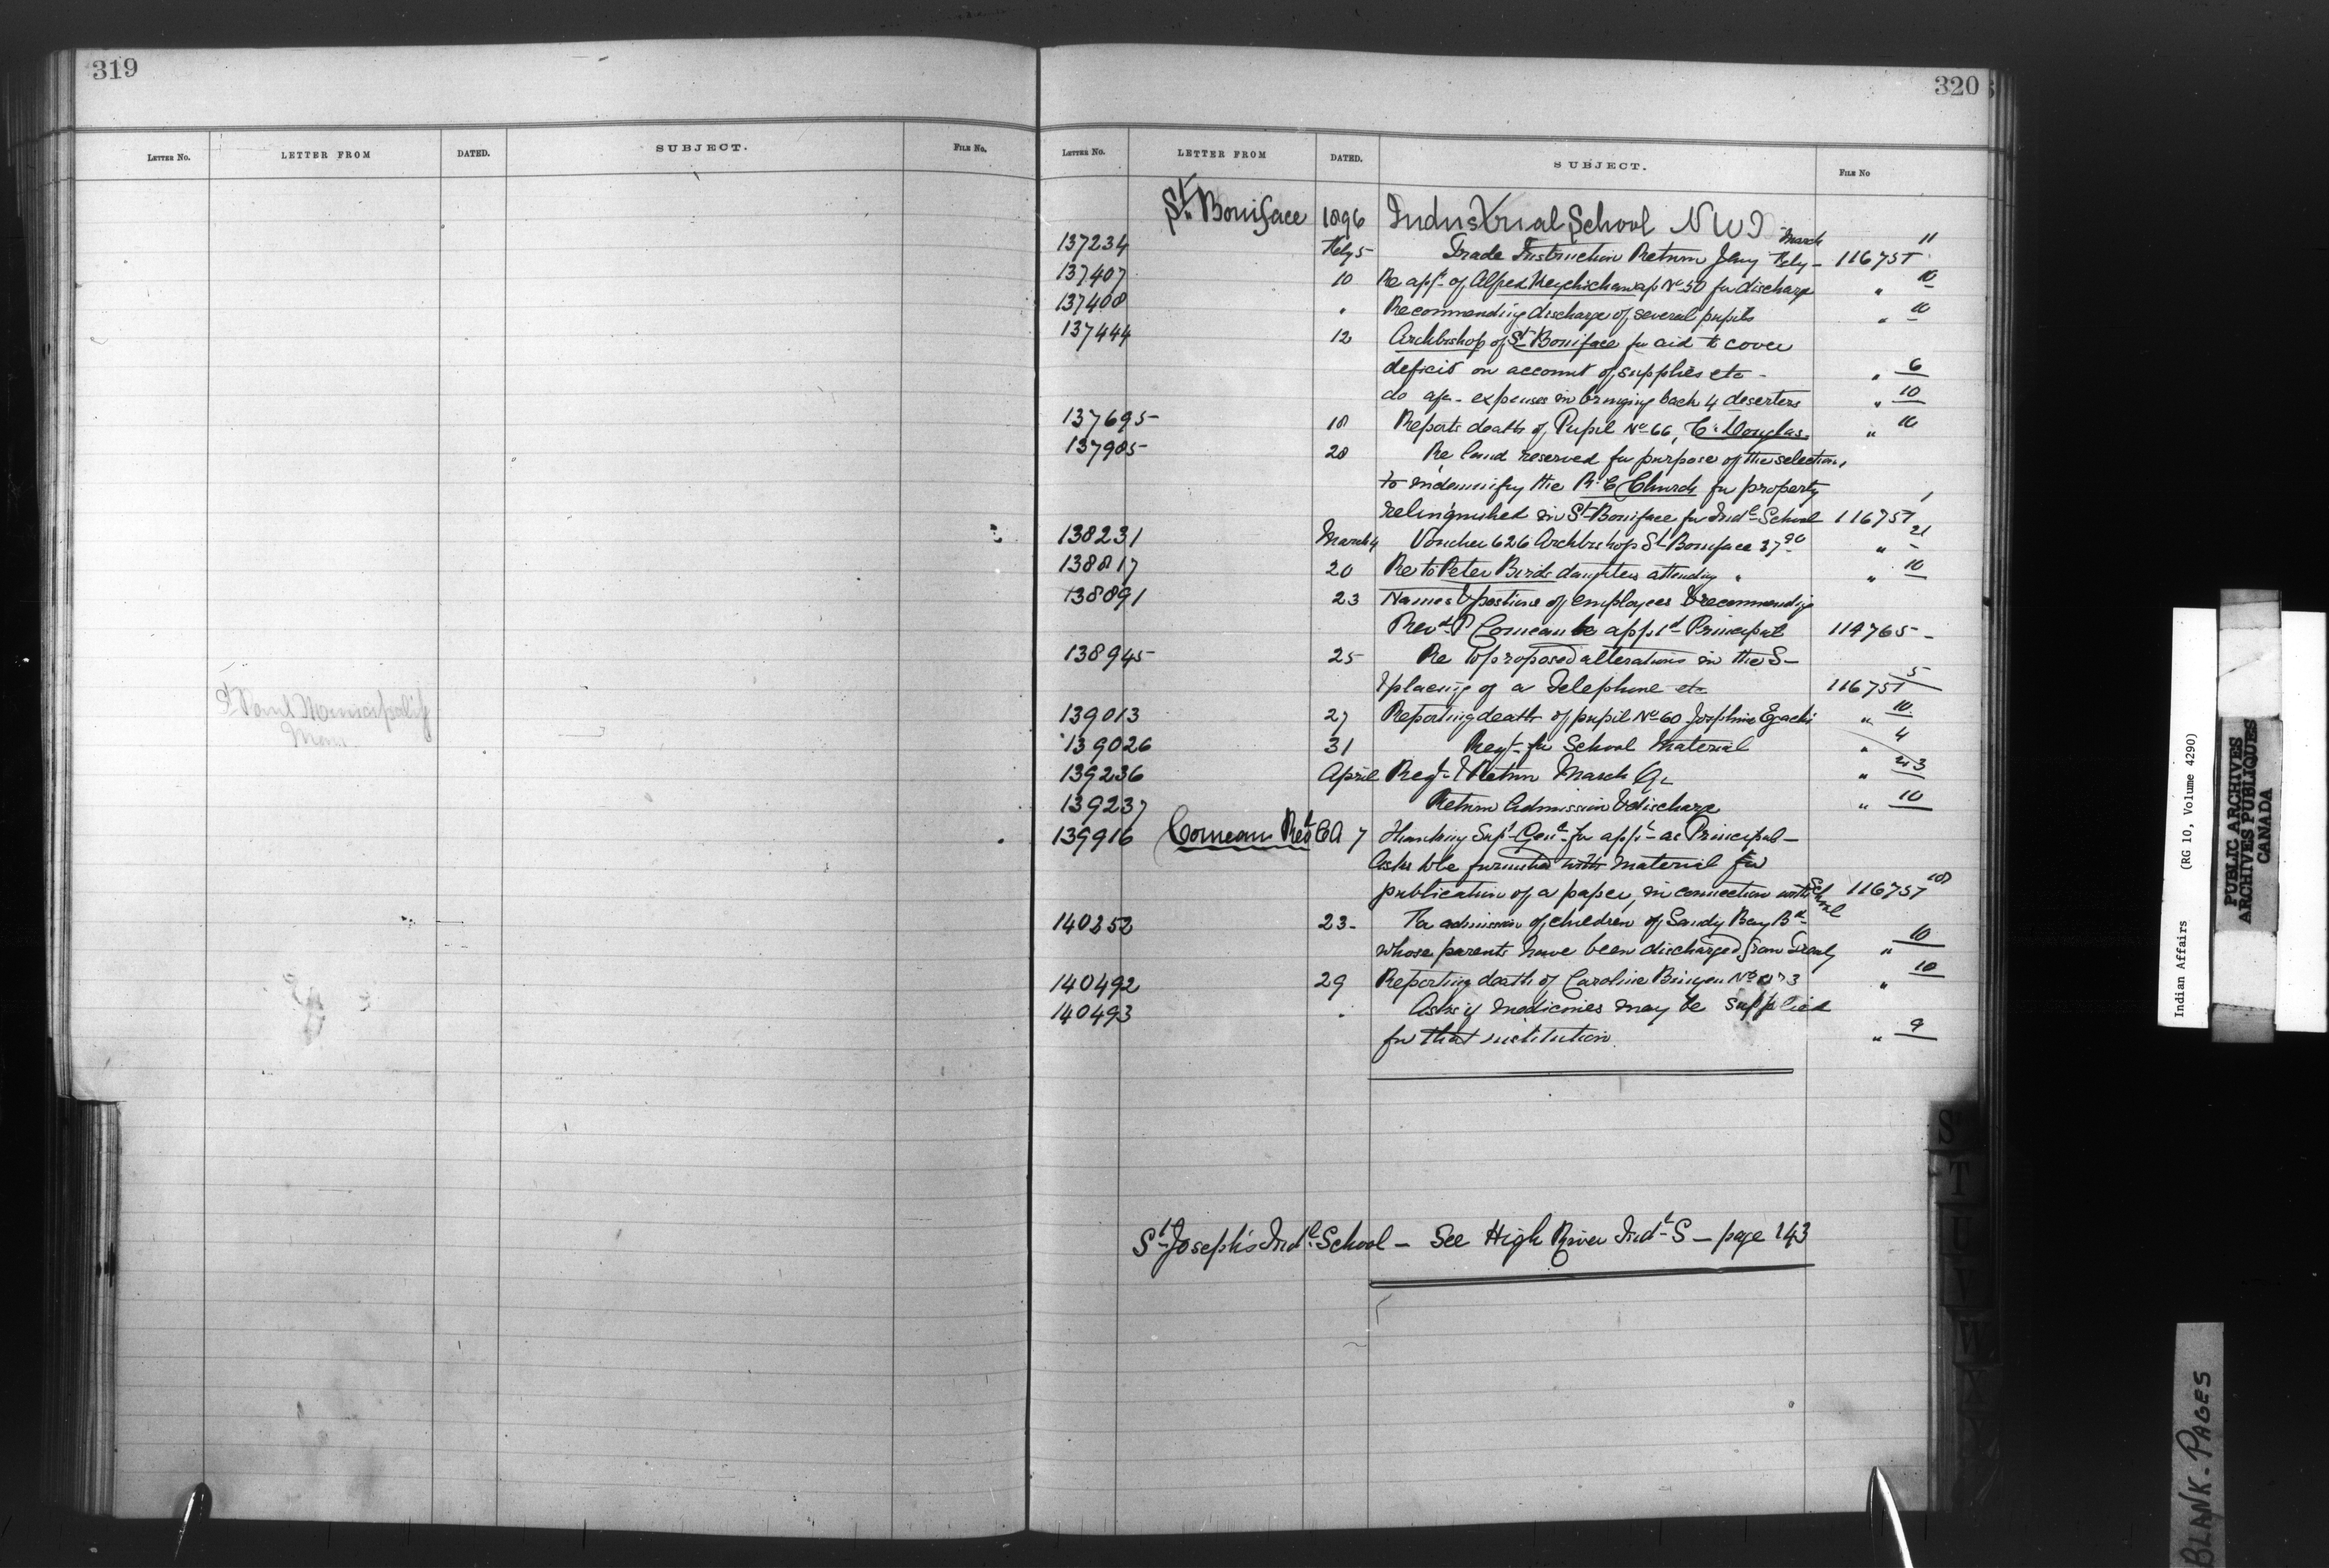 319
LETTER NO. LETTER FROM DATED. SUBJECT. FILE NO.
St Paul Municipality
Man.
320
LETTER NO. LETTER FROM DATED. SUBJECT. FILE NO
St. Boniface 1896 Industrial School N W T
137234 Feby 5 Trade Instruction Return Jany Feby March 116751 11
137407 10 Re appt of Alfred No 50 for discharge " 10
137408 " Recommending discharge of several pupils " 10
137444 12 Archbishop of St Boniface for aid to cover
deficit on account of supplies etc - " 6
do expenses in bringing back 4 deserters " 10
137695 18 Reports death of Pupil No 66, C. Douglas " 10
137985 28 Re land reserved for purpose of the selection,
to indemnify the R. C Church for property
relinquished in St Boniface for Indl School 116751 1
138231 March 4 Voucher 626 Archbishop St Boniface 21
138817 20 Re to Peter Birds daughters attending " " 10
138891 23 Names & positions of employees & recommending
Revd P Comeau be apptd Principal 114765 -
138945 25 Re to proposed alterations in the S -
& placing of a Telephone etc 116751 5
139013 27 Reporting death of pupil No 60 Josephine " 10
139026 31 Reqt for School Material " 4
139236 April Reqt & Return March Qr " 3
139237 Return Admission & discharge " 10
139916 Comeau Revd C A 7 Thanking Supt Genl for appt as Principal -
Asks to be furnished with material for
publication of a paper, in connection with School 116751
140252 23 - For admission of children of Sandy Bay Bd
whose parents have been discharged from Treaty " 10
140492 29 Reporting death of Caroline " 10
140493 " Asks if medicines may be supplied
for that institution " 9
St Joseph's Indl School - See High River Indl S - page 143
S
T
U
V
W
X
Y
Indian Affairs (RG 10, Volume 4290)
PUBLIC ARCHIVES
ARCHIVES PUBLIQUES
CANADA
BLANK-PAGES